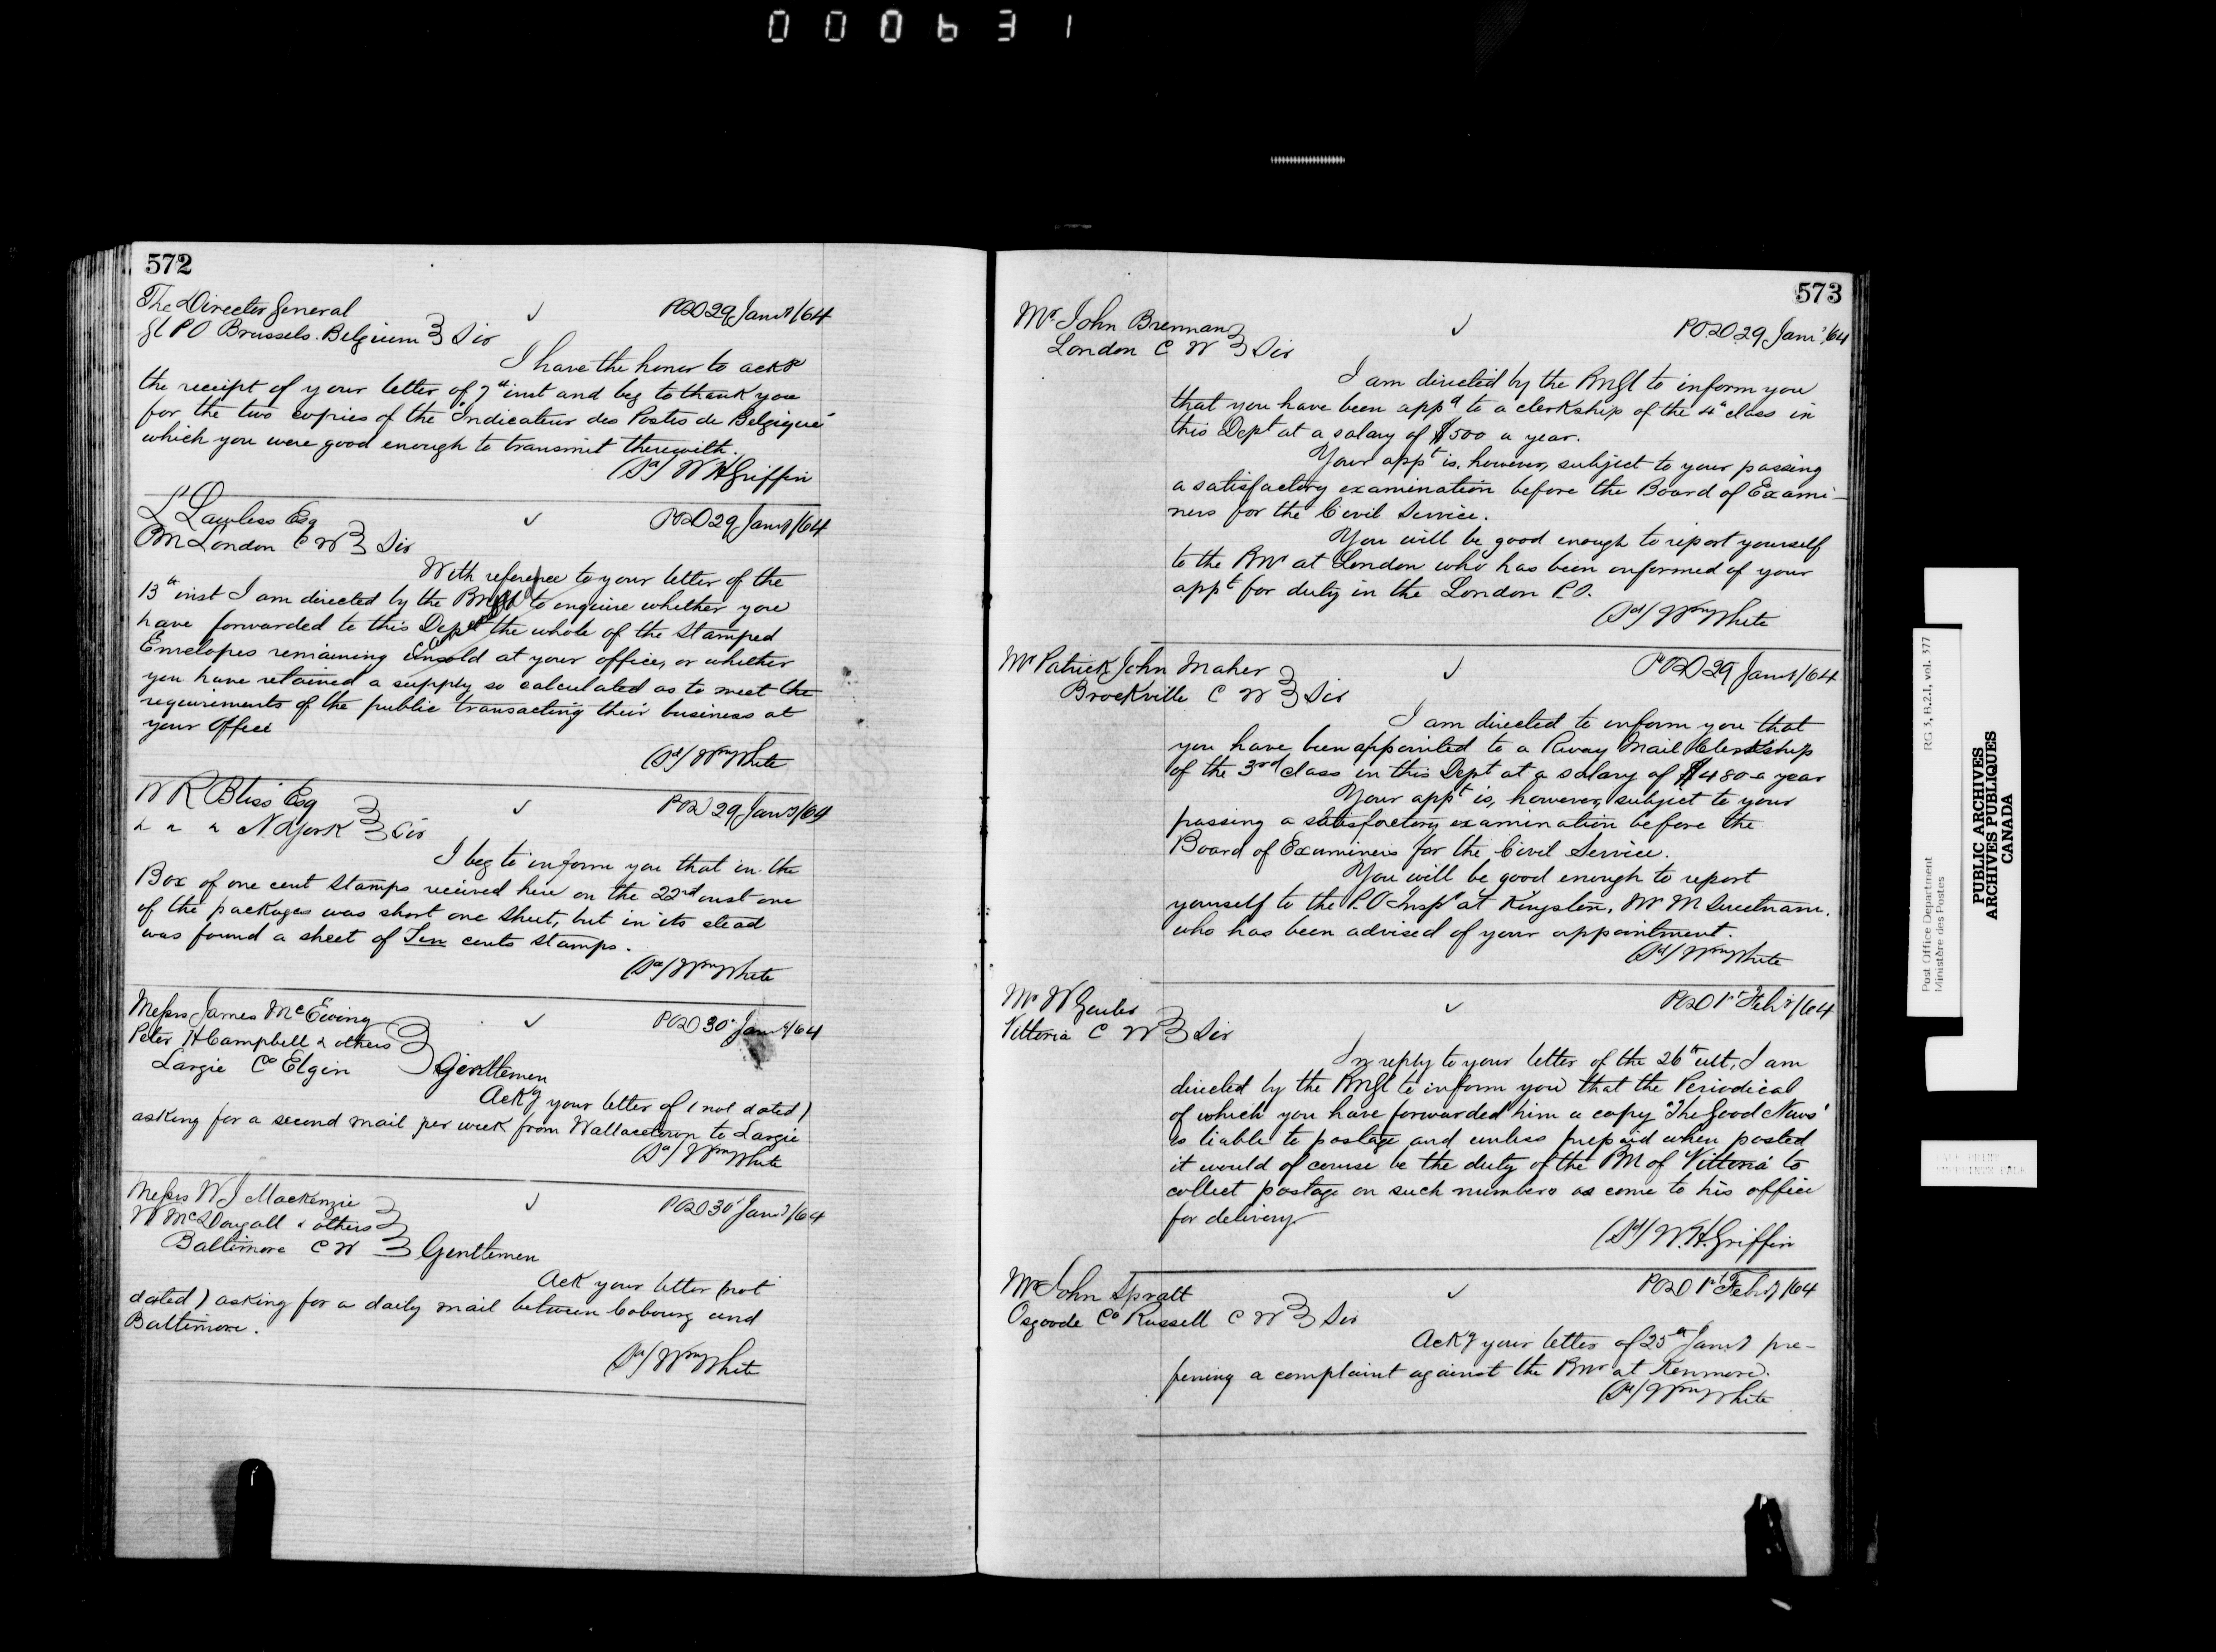 000631
572
The Director General
Gl PO Brussels. Belgium Sir
POD 29 Jany/64
I have the honor to ackge
the receipt of your letter of 7th inst and beg to thank you
for the two copies of the "Indicateur des Postes de Belgique"
which you were good enough to transmit therewith.
(Sd) W H Griffin
L Lawless Esq
PM London C W Sir
POD 29 Jany/64
With reference to your letter of the
13th inst I am directed by the PMGl to enquire whether you
have forwarded to this Dept the whole of the Stamped
Envelopes remaining Unsold at your office, or whether
you have retained a supply so calculated as to meet the
requirements of the public transacting their business at
your Office
(Sd/ Wm White
W R Bliss Esq
N. York Sir
POD 29 Jany/64
I beg to inform you that in the
Box of one cent Stamps received here on the 22nd inst one
of the packages was short one Sheet, but in its stead
was found a sheet of Ten cents Stamps.
(Sd/ Wm White
Messrs James McEwing
Peter H Campbell & others
Largie Co Elgin Gentlemen
POD 30th Jany/64
Ackg your letter of (not dated)
asking for a second mail per week from Wallacetown to Largie
(Sd/ Wm White
Messrs W J Mackenzie
W McDougall & others
Baltimore C W Gentlemen
POD 30th Jany/64
Ack your letter (not
dated) asking for a daily mail between Cobourg and
Baltimore.
(Sd/ Wm White
573
Mr. John Brennan
London C W Sir
P.O.D. 29 Jany/64
I am directed by the PMGl to inform you
that you have been appd to a clerkship of the 4th class in
this Dept at a salary of $500 a year.
Your appt is, however, subject to your passing
a satisfactory examination before the Board of Exami-
ners for the Civil Service.
You will be good enough to report yourself
to the PMr at London who has been informed of your
appt for duty in the London P.O.
(Sd/ Wm White
Mr Patrick John Maher
Brockville C W Sir
POD 29 Jany/64
I am directed to inform you that
you have been appointed to a Rway Mail Clerkship
of the 3rd class in this Dept at a salary of $480 a year
Your appt is, however, subject to your
passing a satisfactory examination before the
Board of Examiners for the Civil Service.
You will be good enough to report
yourself to the P.O Inspr at Kingston, Mr M Sweetnam,
who has been advised of your appointment.
(Sd/ Wm White
Mr W
Vittoria C W Sir
POD 1st Feby/64
In reply to your letter of the 26th ult, I am
directed by the PMGl to inform you that the Periodical
of which you have forwarded him a copy "The Good News"
is liable to postage and unless prepaid when posted
it would of course be the duty of the PM of Vittoria to
collect postage on such numbers as come to his office
for delivery.
(Sd/ W.H. Griffin
Mr John Spratt
Osgoode Co Russell C W Sir
POD 1st Feby/64
Ackg your letter of 25th Jany pre-
ferring a complaint against the PMr at Kenmore.
(Sd/ Wm White
Post Office Department RG 3, B.2.I, vol. 377
Ministère des Postes
PUBLIC ARCHIVES
ARCHIVES PUBLIQUES
CANADA